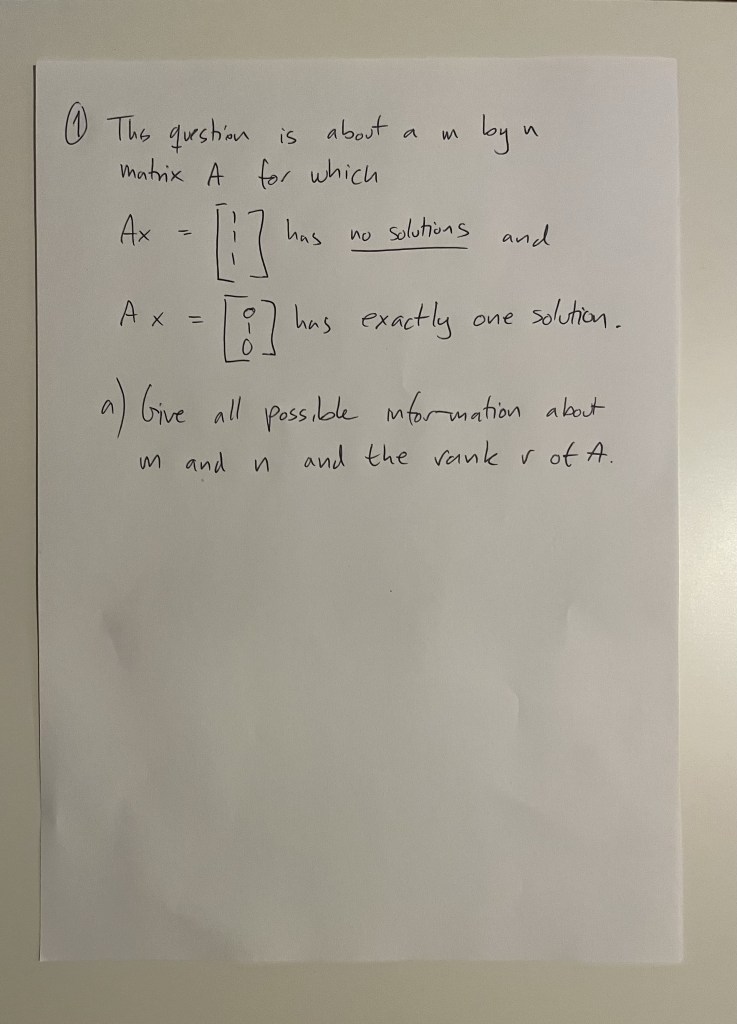 ① This question is about a m by n
matrix A for which
Ax = [1 1 1] has no solutions and
Ax = [0 1 0] has exactly one solution.
a) Give all possible information about
m and n and the rank r of A.